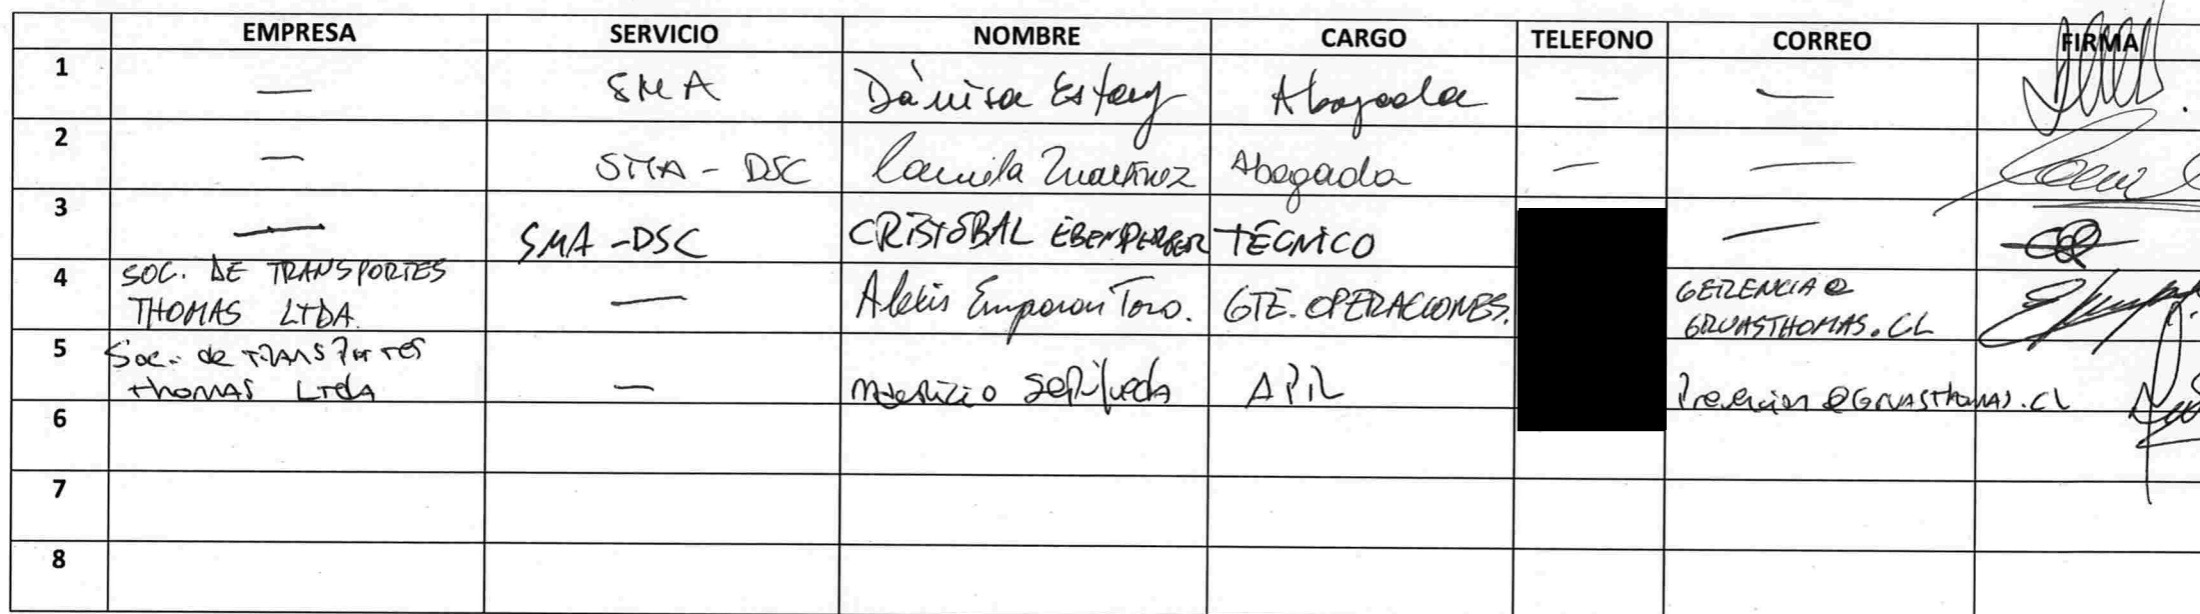 EMPRESA SERVICIO NOMBRE CARGO TELEFONO CORREO FIRMA
1 — SMA Dánisa Estay Abogada — —
2 — SMA - DSC Camila Martínez Abogada — —
3 — SMA - DSC CRISTÓBAL TÉCNICO —
4 SOC. DE TRANSPORTES
THOMAS LTDA. — Alexis Toro. GTE. OPERACIONES. GERENCIA@
GRUASTHOMAS.CL
5 Soc. de TRANSPORTES
THOMAS LTDA — Mauricio Sepúlveda Prevencion@GRUASTHOMAS.CL
6
7
8